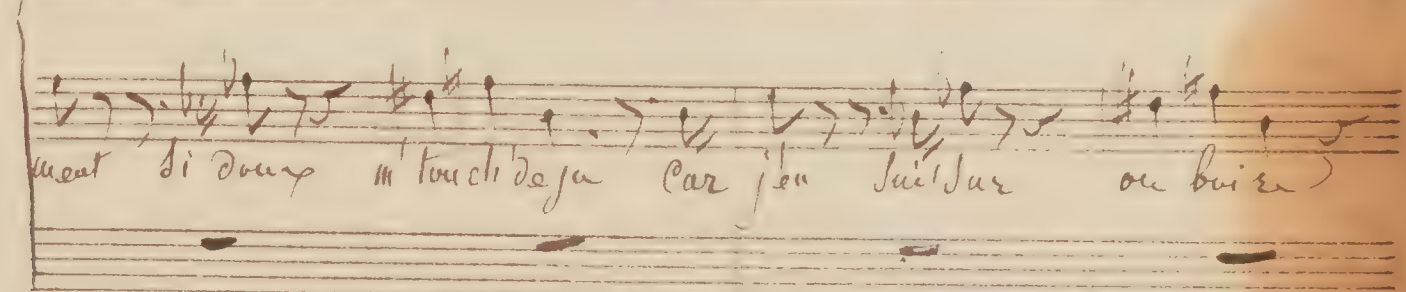 ment si doux m'touch'deja Car j'en suis sur on boira